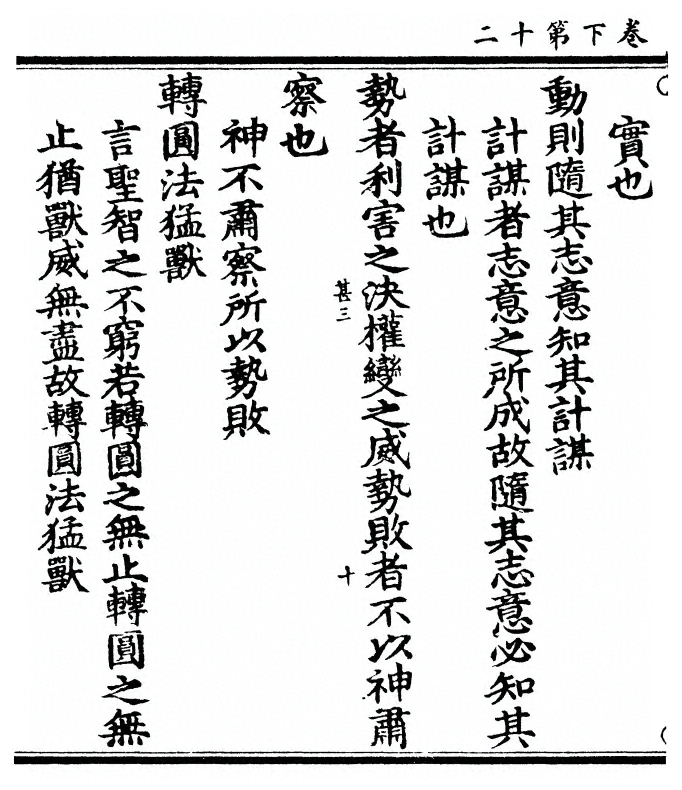 卷下第十二
實也
動則隨其志意知其計謀
計謀者志意之所成故隨其志意必知其
計謀也
勢者利害之決權變之威勢敗者不以神肅
甚三
十
察也
神不肅察所以勢敗
轉圓法猛獸
言聖智之不窮若轉圓之無止轉圓之無
止猶獸威無盡故轉圓法猛獸